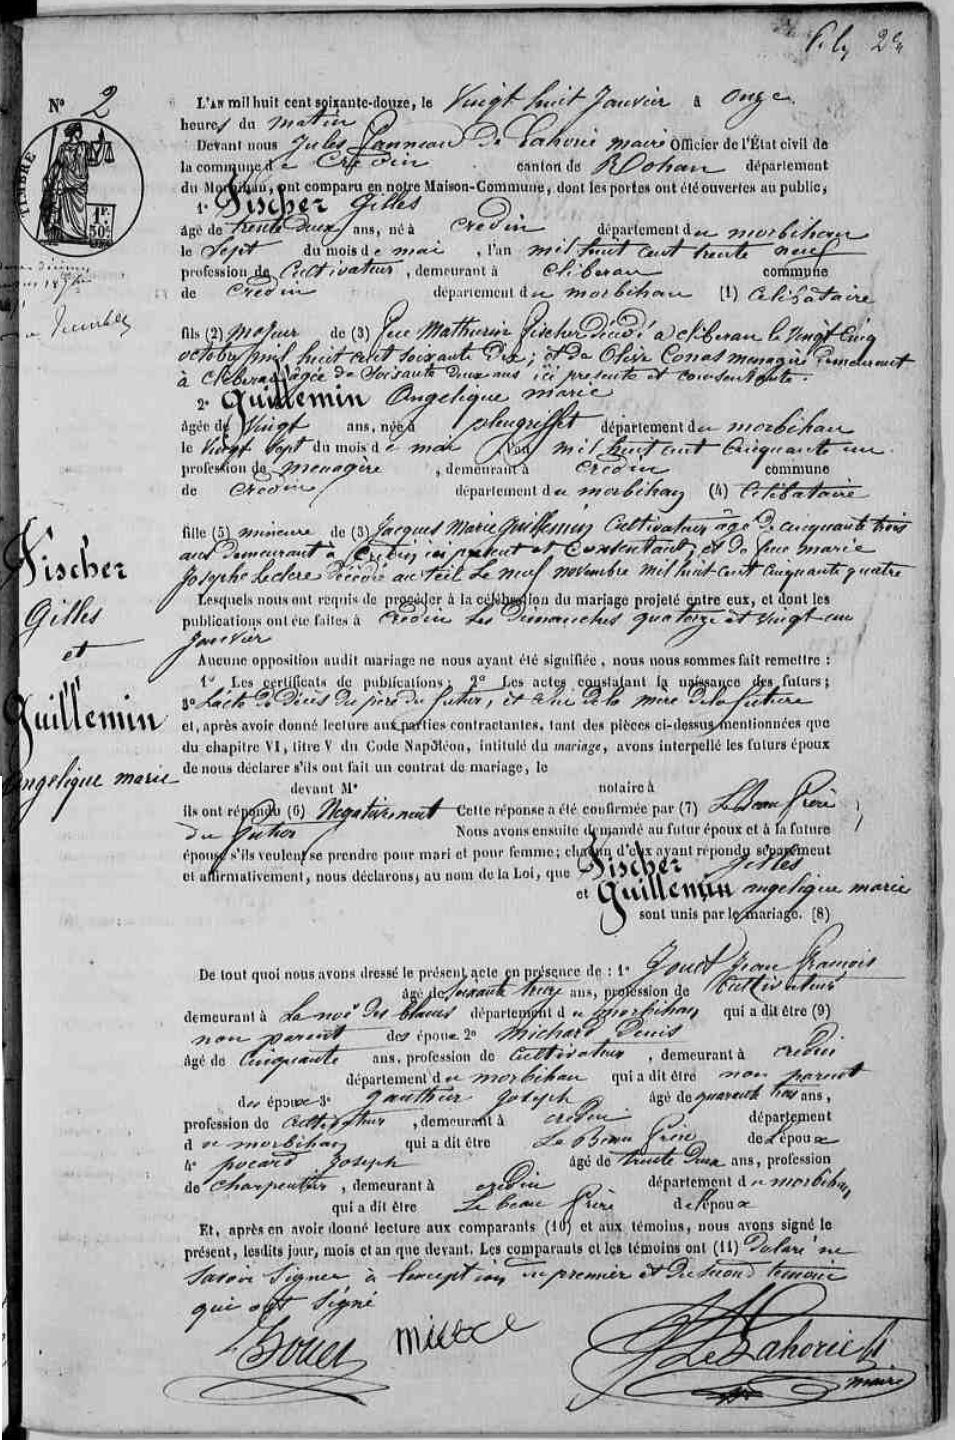 N° 2
L'AN mil huit cent soixante-douze, le Vingt huit Janvier à onze
heures du matin
Devant nous Jules Janneau De Lahorie maire Officier de l'État civil de
la commune de Credin canton de Rohan département
du Morbihan, ont comparu en notre Maison-Commune, dont les portes ont été ouvertes au public,
1° Fischer Gilles
âgé de trente deux ans, né à Credin département du morbihan
le Sept du mois de mai, l'an mil huit cent trente neuf
profession de Cultivateur, demeurant à cliberau commune
de Credin département du morbihan (1) Celibataire
fils (2) majeur de (3) feu Mathurin Fischer décédé à cliberau le vingt cinq
octobre mil huit cent soixante dix; et de Olive Conas menagère demeurant
à cliberau âgée de soixante deux ans ici presente et consentante.
2° Guillemin Angelique marie
âgée de Vingt ans, née à pleugriffet département du morbihan
le Vingt Sept du mois de mai l'an mil huit cent cinquante un
profession de menagère, demeurant à credin commune
de Credin département du morbihan (4) Celibataire
fille (5) mineure de (3) Jacques Marie Guillemin Cultivateur âgé de cinquante trois
ans demeurant à Credin ici présent et Consentant; et de feue marie
Josephe Leclere décédée au teil Le neuf novembre mil huit cent cinquante quatre
Lesquels nous ont requis de procéder à la célébration du mariage projeté entre eux, et dont les
publications ont été faites à credin les Dimanches quatorze et vingt un
Janvier
Aucune opposition audit mariage ne nous ayant été signifiée, nous nous sommes fait remettre :
1° Les certificats de publications; 2° Les actes constatant la naissance des futurs;
3° L'acte de décès du père du futur, et celui de la mère de la future
et, après avoir donné lecture aux parties contractantes, tant des pièces ci-dessus mentionnées que
du chapitre VI, titre V du Code Napoléon, intitulé du mariage, avons interpellé les futurs époux
de nous déclarer s'ils ont fait un contrat de mariage, le
devant Me notaire à
ils ont répondu (6) Negativement Cette réponse a été confirmée par (7) Le Beau frère
du futur Nous avons ensuite demandé au futur époux et à la future
épouse s'ils veulent se prendre pour mari et pour femme; chacun d'eux ayant répondu séparément
et affirmativement, nous déclarons, au nom de la Loi, que Fischer Gilles
et Guillemin angelique marie
sont unis par le mariage. (8)
De tout quoi nous avons dressé le présent acte en présence de : 1° Jouet Jean François
âgé de soixante treize ans, profession de Cultivateur
demeurant à La noë des blaves département du morbihan qui a dit être (9)
non parent des époux 2° michard Denis
âgé de cinquante ans, profession de Cultivateur, demeurant à credin
département du morbihan qui a dit être non parent
des époux 3° gauthier Joseph âgé de quarante trois ans,
profession de cultivateur, demeurant à credin département
du morbihan qui a dit être Le Beau frère de l'époux
4° pocard Joseph âgé de trente deux ans, profession
de charpentier, demeurant à credin département du morbihan
qui a dit être Le beau frère de l'époux
Et, après en avoir donné lecture aux comparants (10) et aux témoins, nous avons signé le
présent, lesdits jour, mois et an que devant. Les comparants et les témoins ont (11) Declaré ne
Savoir Signer à l'exception du premier et du second temoin
qui ont Signé
maire
TIMBRE
1F.
50c
Fischer
Gilles
et
Guillemin
angelique marie